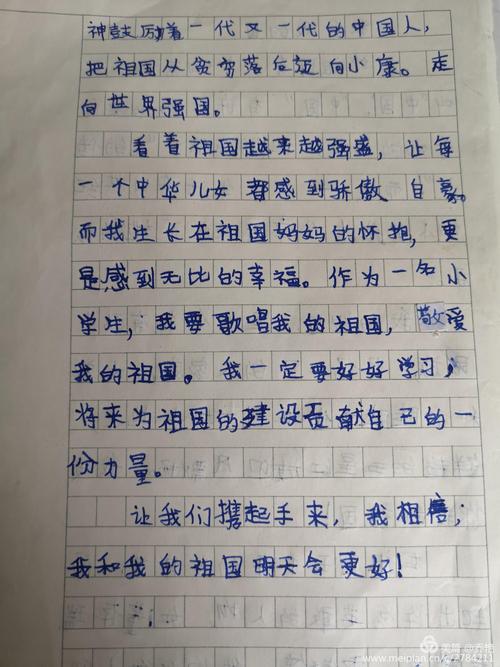 神鼓厉着一代又一代的中国人，
把祖国从贫穷落后迈向小康。走
向世界强国。
看着祖国越来越强盛，让每
一个中华儿女都感到骄傲自豪。
而我生长在祖国妈妈的怀抱，更
是感到无比的幸福。作为一名小
学生，我要歌唱我的祖国，敬爱
我的祖国。我一定要好好学习，
将来为祖国的建设贡献自己的一
份力量。
让我们携起手来，我相信，
我和我的祖国明天会更好！
美篇@乔艳
www.meipian.cn/c/2784211